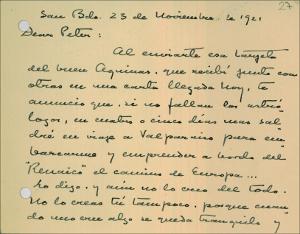 27
San Bdo. 23 de Noviembre de 1921
Dear Peter:
Al enviarte esa tarjeta
del buen Aquinas, que recibí junto con
otras en una carta llegada hoy, te
anuncio que, si no fallan los astró
logos, en cuatro o cinco días mas sal
dré en viaje a Valparaíso para em
barcarme y emprender a bordo del
el camino de Europa...
Lo digo, y aún no lo creo del todo.
No lo creas tú tampoco, porque cuan
do uno cree algo se queda tranquilo y